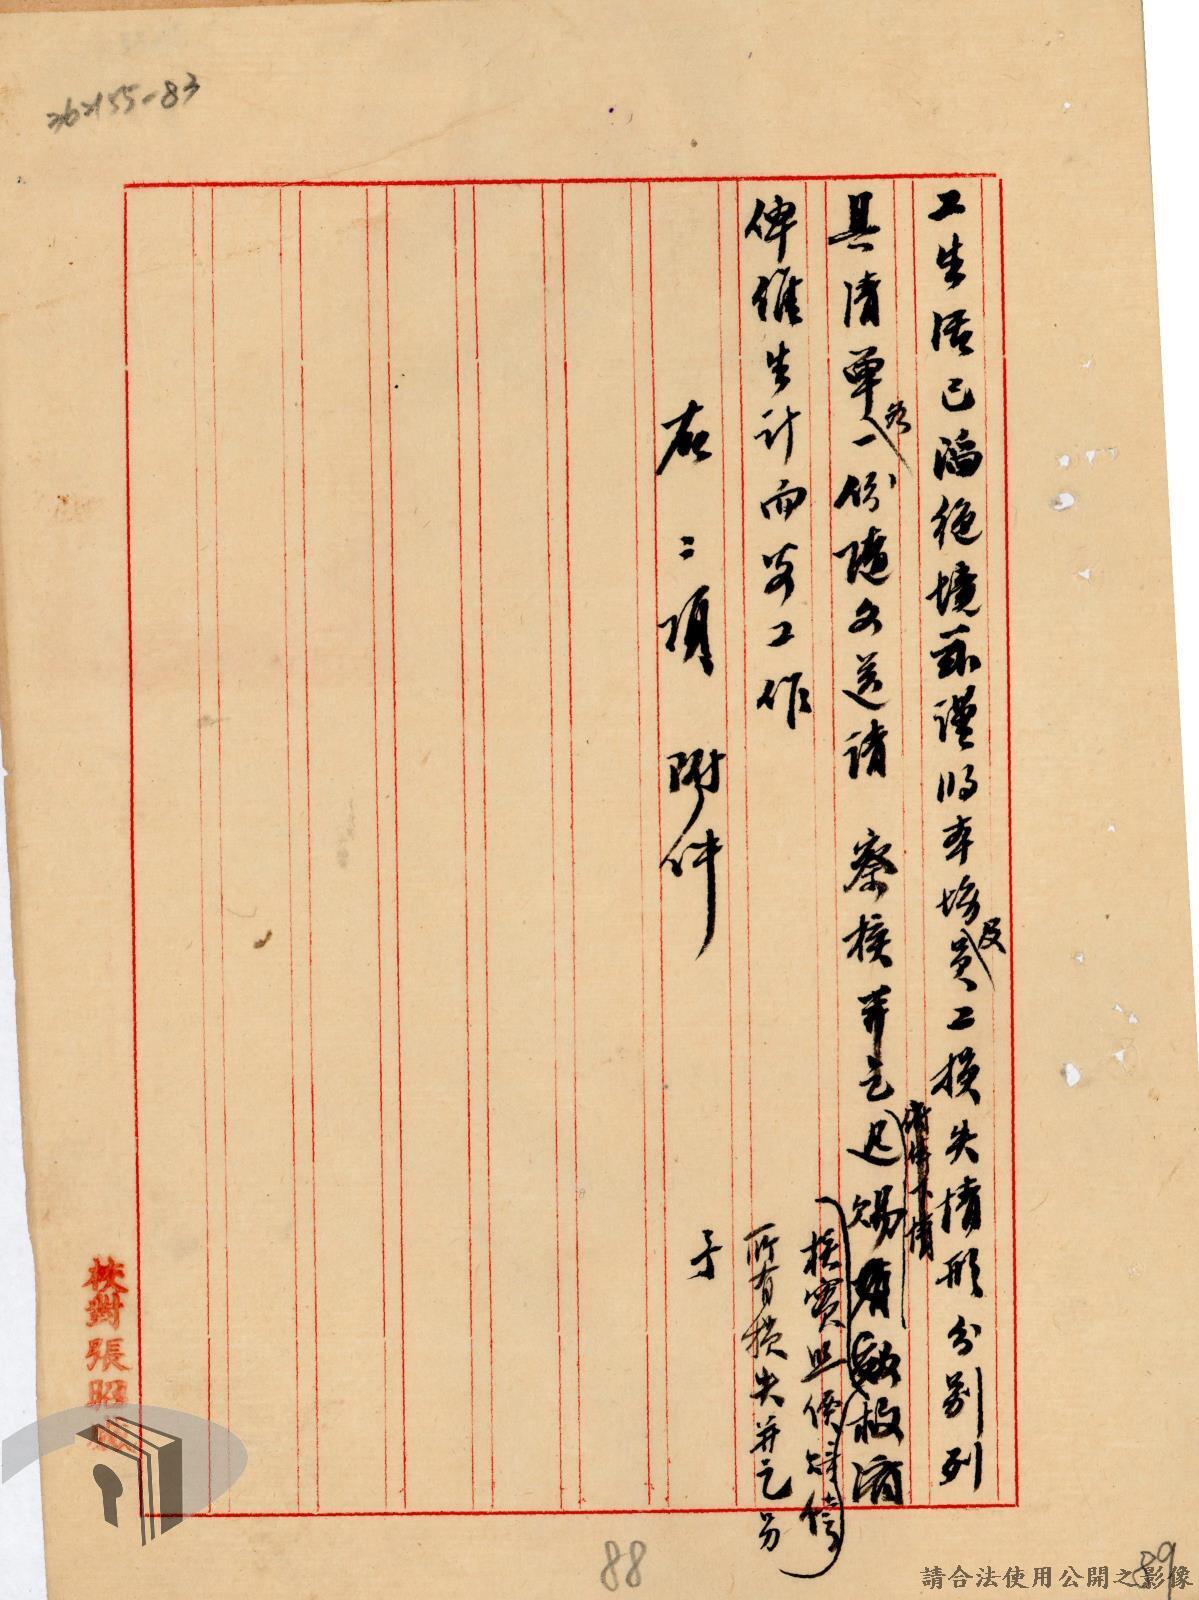 工生活已陷絕境茲謹將本場及員工損失情形分別列
具清單各一份隨文送請 察核并乞迅賜救濟
核實照價賠償
所有損失并乞另
予
俾維生計而安工作
右二項附件
校對張昭
88
89
請合法使用公開之影像